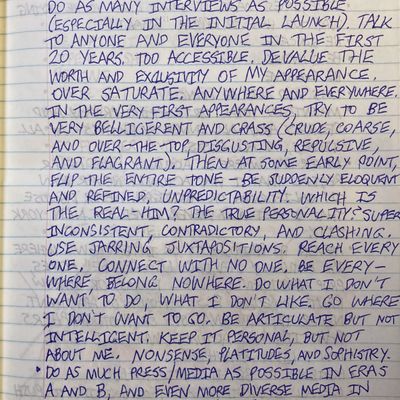 DO AS MANY INTERVIEWS AS POSSIBLE
(ESPECIALLY IN THE INITIAL LAUNCH). TALK
TO ANYONE AND EVERYONE IN THE FIRST
20 YEARS. TOO ACCESSIBLE. DEVALUE THE
WORTH AND EXCLUSIVITY OF MY APPEARANCE.
OVER SATURATE. ANYWHERE AND EVERYWHERE.
IN THE VERY FIRST APPEARANCES, TRY TO BE
VERY BELLIGERENT AND CRASS (CRUDE, COARSE,
AND OVER-THE-TOP, DISGUSTING, REPULSIVE,
AND FLAGRANT). THEN AT SOME EARLY POINT,
FLIP THE ENTIRE TONE - BE SUDDENLY ELOQUENT
AND REFINED, UNPREDICTABILITY. WHICH IS
THE REAL-HIM? THE TRUE PERSONALITY? SUPER
INCONSISTENT, CONTRADICTORY, AND CLASHING.
USE JARRING JUXTAPOSITIONS. REACH EVERY
ONE, CONNECT WITH NO ONE, BE EVERY-
WHERE, BELONG NOWHERE. DO WHAT I DON'T
WANT TO DO, WHAT I DON'T LIKE, GO WHERE
I DON'T WANT TO GO. BE ARTICULATE BUT NOT
INTELLIGENT. KEEP IT PERSONAL, BUT NOT
ABOUT ME. NONSENSE, PLATITUDES, AND SOPHISTRY.
• DO AS MUCH PRESS/MEDIA AS POSSIBLE IN ERAS
A AND B, AND EVEN MORE DIVERSE MEDIA IN